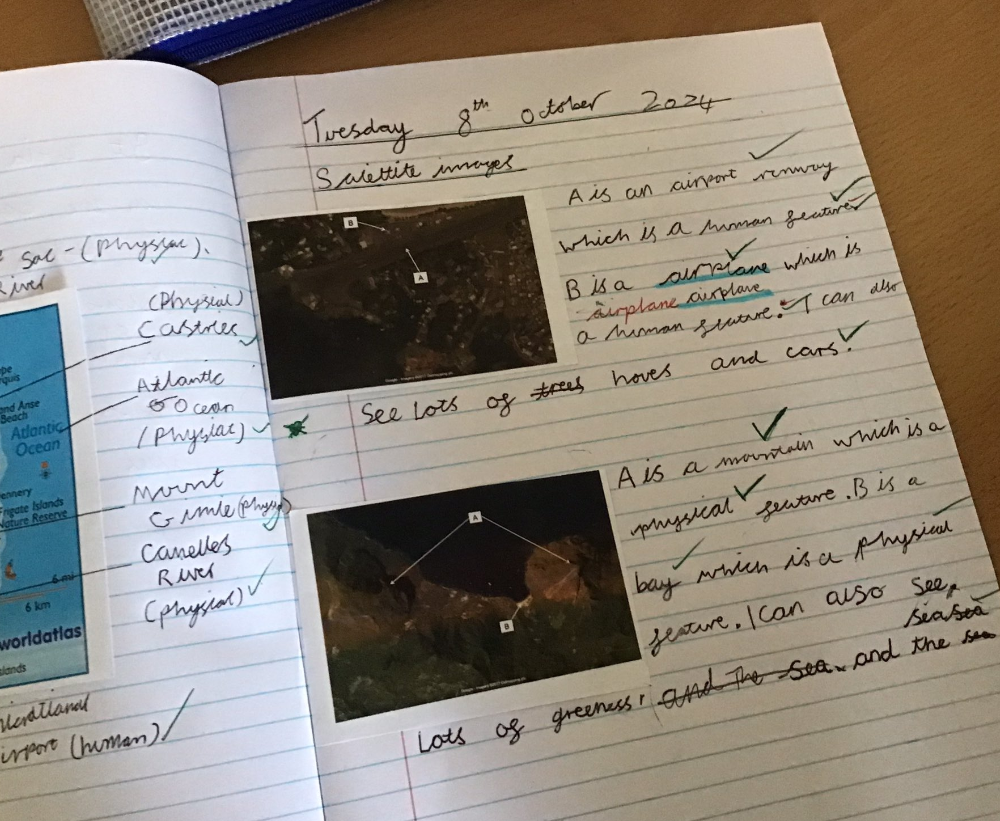 Sac - (Physiac).
River
(Physial)
Castries
Atlantic
Ocean
(Physiac)
Mount
Gimie (physi)
Canelles
River
(physial)
irport (human)
and Anse
Beach
Atlantic
Ocean
ennery
Frigate Islands
Nature Reserve
6 mi
6 km
worldatlas
Tuesday 8th October 2024
Satettite images
A is an airport runway
which is a human feature
B is a airplane which is
airplane airplane
a human feature. I can also
See Lots of trees hoves and cars.
B
A
A is a mountain which is a
physical feature. B is a
bay which is a physical
feature. I Can also See,
sea sea
and the sea. and the sea
Lots of greeness,
A
B